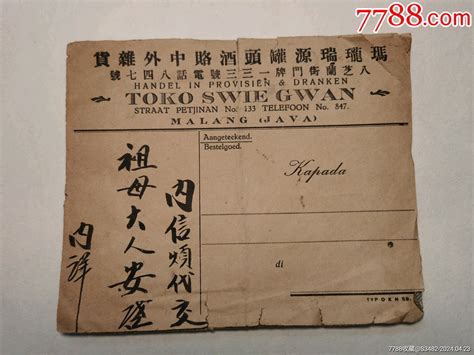 7788.com
瑪瓏瑞源罐頭酒咯中外雜貨
八芝蘭街門牌一三三號電話八四七號
HANDEL IN PROVISIEN & DRANKEN
TOKO SWIE GWAN
STRAAT PETJINAN No. 133 TELEFOON No. 847.
MALANG (JAVA)
Aangeteekend.
Bestelgoed.
Kapada
di
內信煩代交
祖母大人安
內詳
7788收藏@S3482-2024.04.23